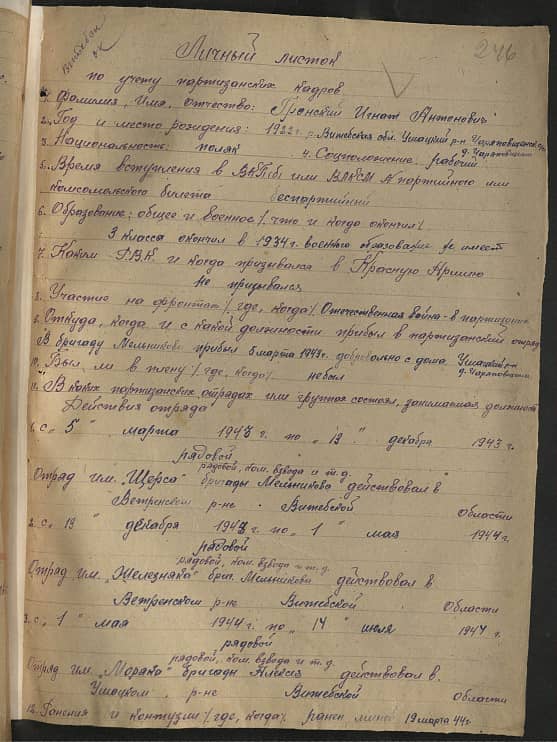 Витебск
ок
246
Личный листок
по учету партизанских кадров
1. Фамилия, Имя, отчество: Гронский Игнат Антонович
2. Год и место рождения: 1922 г. р. Витебская обл. Ушацкий р-н
3. Национальность: поляк 4. Соцположение. рабочий
5. Время вступления в ВКП(б) или ВЛКСМ № партийного или
комсомольского билета беспартийный
6. Образование: общее и военное /. что и когда окончил /.
3 класса окончил в 1934 г. военного образование не имеет
7. Каким РВК и когда призывался в Красную Армию
не призывался
8. Участие на фронтах /. где, когда /. Отечественная война - в партизанах
9. Откуда, когда и с какой должности прибыл в партизанский отряд
В бригаду Мельникова прибыл 5 марта 1943 г. добровольно с дома Ушацкий р-н
10. Был ли в плену /. где, когда /. не был
11. В каких партизанских отрядах или группах состоял, занимаемая должность
Действия отряда
1. с " 5 " марта 1943 г. по " 19 " декабря 1943 г.
рядовой
рядовой, ком. взвода и т. д.
Отряд им. "Щорса" бригады Мельникова действовал в
Ветренском р-не Витебской Области
2. с " 19 " декабря 1943 г. по " 1 " мая 1944 г.
рядовой
рядовой, ком. взвода и т. д.
Отряд им. "Железняка" бриг. Мельникова действовал в
Ветренском р-не Витебской Области
3. с " 1 " мая 1944 г. по " 14 " июля 1944 г.
рядовой
рядовой, ком. взвода и т. д.
Отряд им. "Моряка" бригады Алексея действовал в
Ушацком р-не Витебской Области
12. Ранения и контузии /. где, когда /. ранен миной 19 марта 44 г.